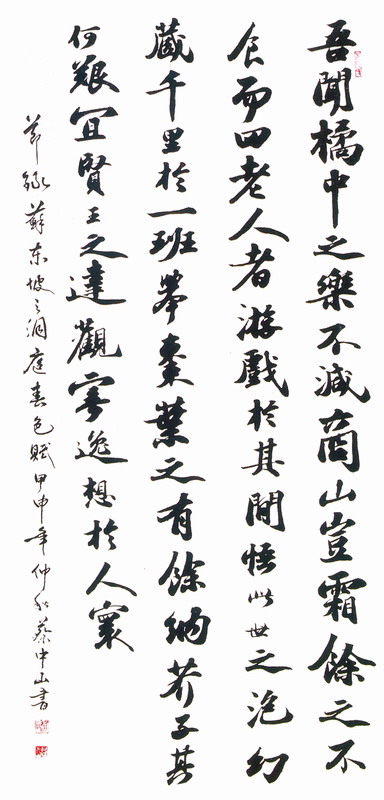 吾聞橘中之樂不減商山豈霜餘之不
食而四老人者游戲於其間悟此世之泡幻
藏千里於一班舉棗葉之有餘納芥子其
何艱宜賢王之達觀寄逸想於人寰
節錄蘇東坡之洞庭春色賦甲申年仲秋蔡中山書